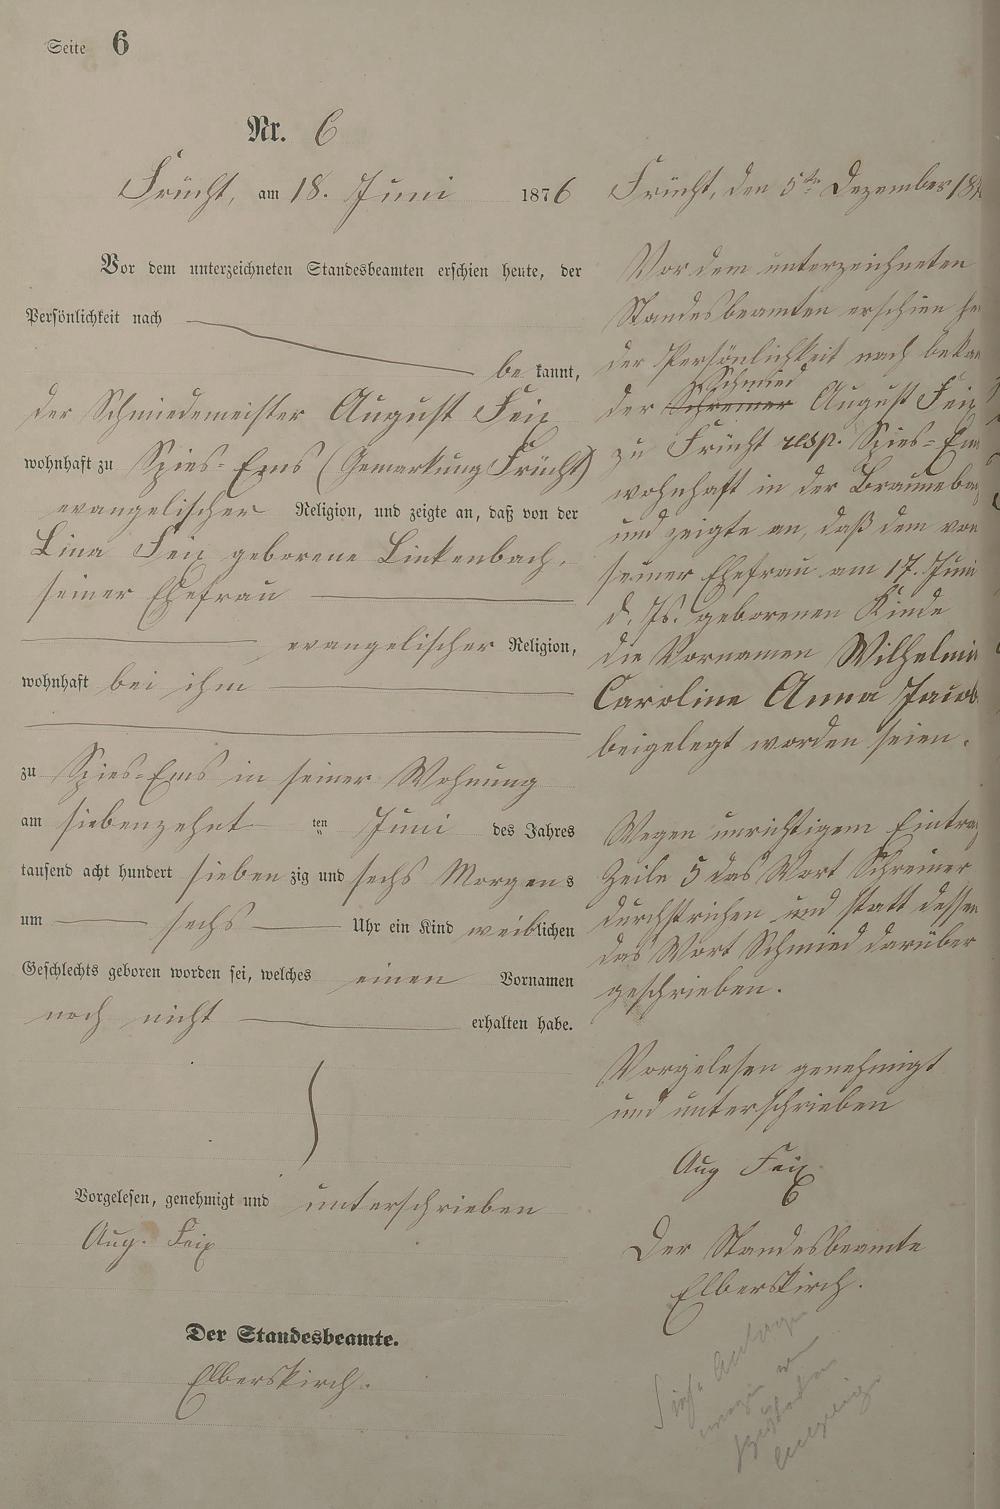 Seite 6
Nr. 6
Frücht, am 18. Juni 1876
Vor dem unterzeichneten Standesbeamten erschien heute, der
Persönlichkeit nach
be kannt,
der Schmiedemeister August Feix
wohnhaft zu Spies-Ems (Gemarkung Frücht)
evangelischer Religion, und zeigte an, daß von der
Lina Feix geborene Linkenbach,
seiner Ehefrau
evangelischer Religion,
wohnhaft bei ihm
zu Spies-Ems in seiner Wohnung
am siebenzehnt ten Juni des Jahres
tausend acht hundert sieben zig und sechs Morgens
um sechs Uhr ein Kind weiblichen
Geschlechts geboren worden sei, welches einen Vornamen
noch nicht erhalten habe.
Vorgelesen, genehmigt und unterschrieben
Aug. Feix
Der Standesbeamte.
Elberskirch.
Frücht, den 5ten Dezember 187
Vor dem unterzeichneten
Standesbeamten erschien he
der Persönlichkeit nach beka
Schmied
der Schreiner August Feix
zu Frücht resp. Spies-Em
wohnhaft in der Brauneba
und zeigte an, daß dem von
seiner Ehefrau am 17. Juni
d. Js. geborenen Kinde
die Vornamen Wilhelmi
Caroline Anna Jacob
beigelegt worden seien.
Wegen unrichtigem Eintra
Zeile 5 das Wort Schreiner
durchstrichen und statt dessen
das Wort Schmied darüber
geschrieben.
Vorgelesen genehmigt
und unterschrieben
Aug Feix
Der Standesbeamte
Elberskirch.